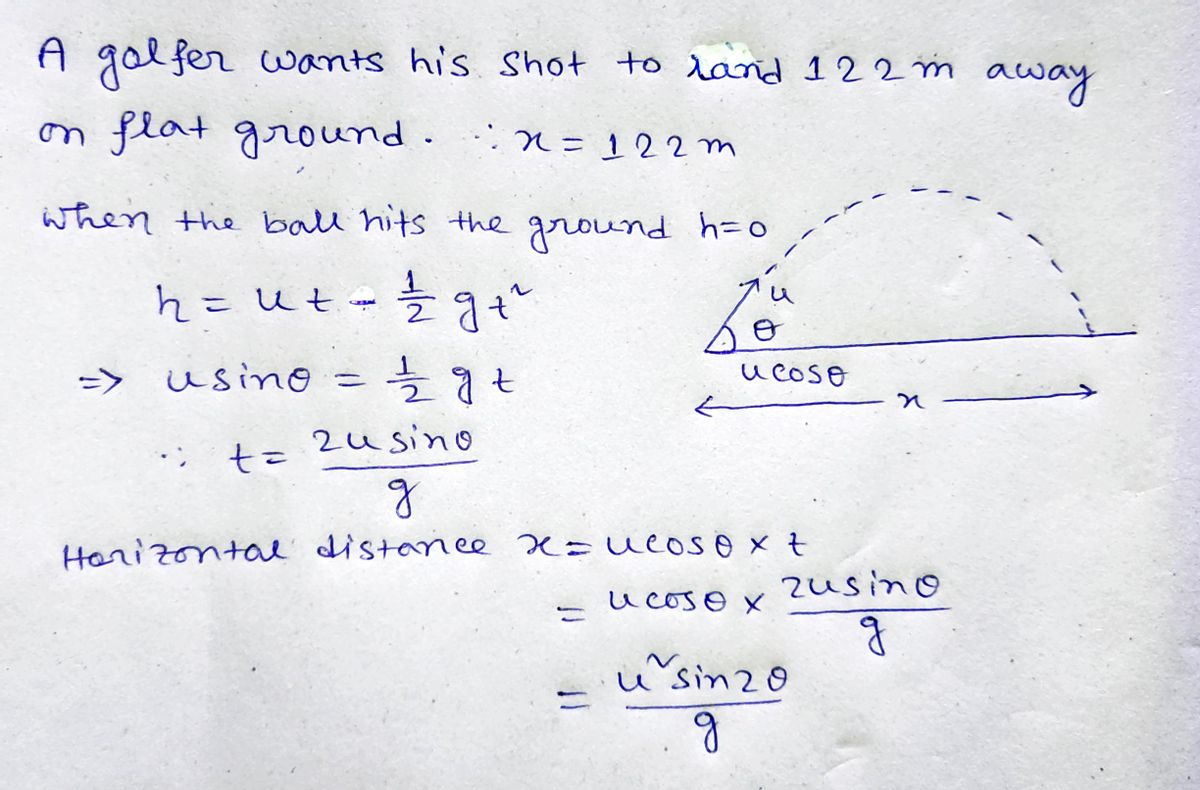 A golfer wants his shot to land 122 m away
on flat ground. ∴ x = 122 m
when the ball hits the ground h=0
h = ut - 1/2 gt²
=> usinθ = 1/2 gt
∴ t = 2usinθ/g
u
θ
ucosθ
x
Horizontal distance x = ucosθ × t
= ucosθ × 2usinθ/g
= u²sin2θ/g